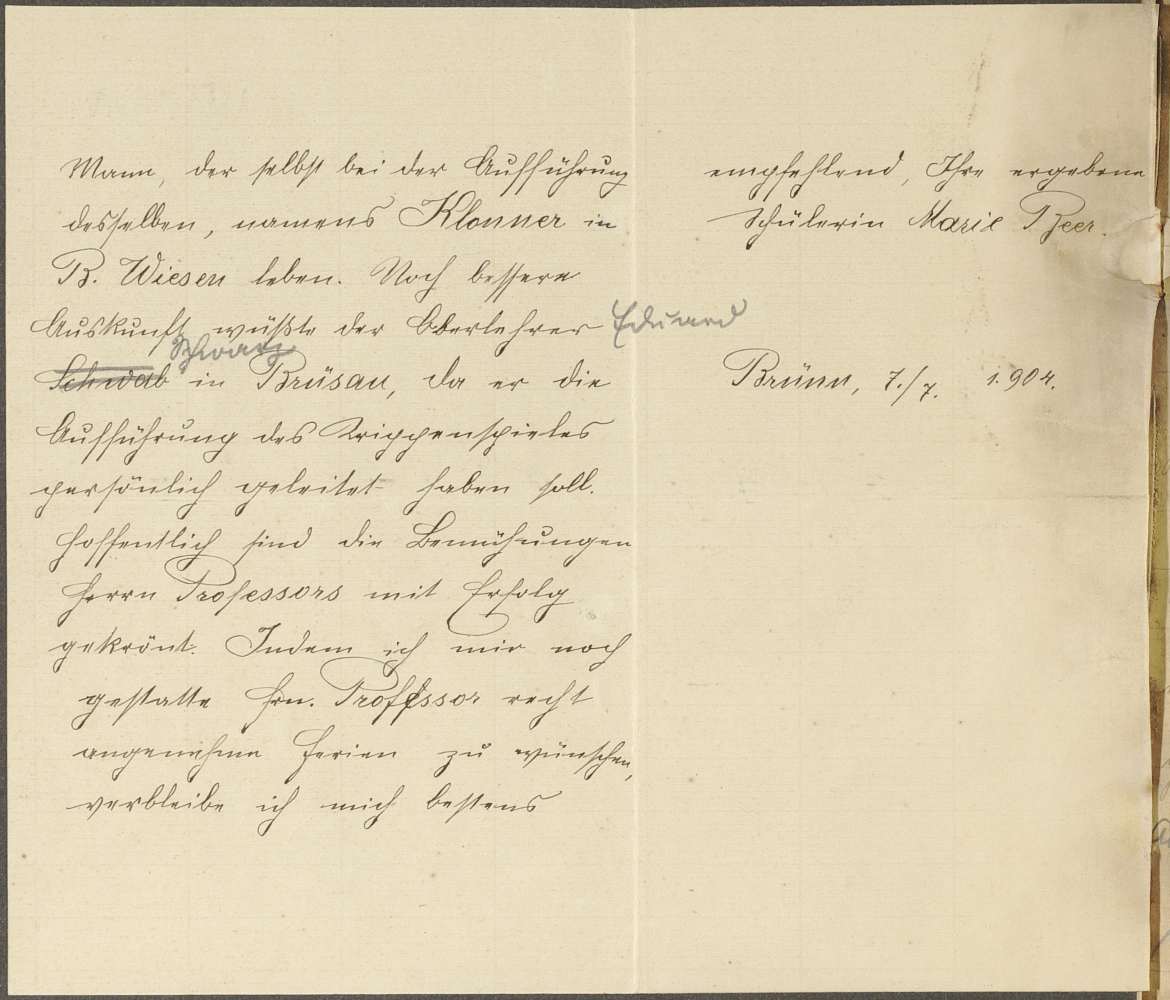 Mann, der selbst bei der Aufführung
desselben, namens Klonner in
B. Wiesen leben. Noch bessere
Auskunft wüßte der Oberlehrer Eduard
Schwab Schwarz in Brüsau, da er die
Aufführung des Krippenspieles
persönlich geleitet haben soll.
Hoffentlich sind die Bemühungen
Herrn Professors mit Erfolg
gekrönt. Indem ich mir noch
gestatte Hrn. Professor recht
angenehme Ferien zu wünschen,
verbleibe ich mich bestens
empfehlend, Ihre ergebene
Schülerin Marie Beer.
Brünn, 7./7. 1904.